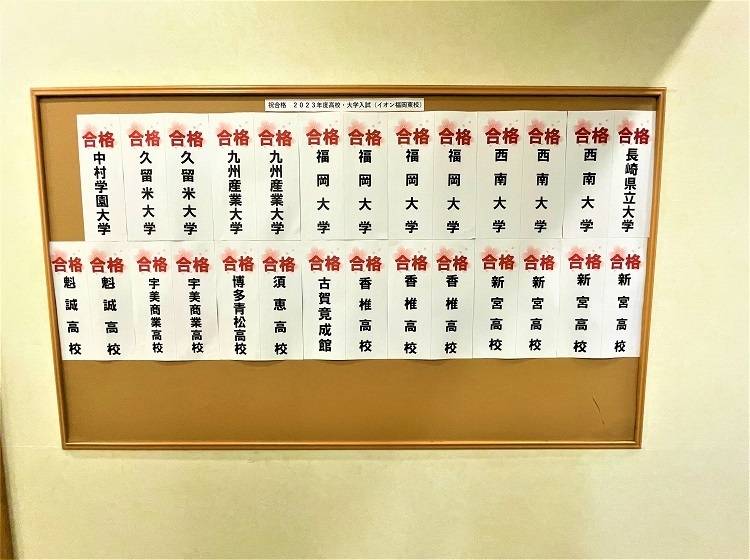 祝合格 2023年度高校・大学入試（イオン福岡東校）
合格
長崎県立大学
合格
西南大学
合格
西南大学
合格
西南大学
合格
福岡大学
合格
福岡大学
合格
福岡大学
合格
福岡大学
合格
九州産業大学
合格
九州産業大学
合格
久留米大学
合格
久留米大学
合格
中村学園大学
合格
新宮高校
合格
新宮高校
合格
新宮高校
合格
新宮高校
合格
香椎高校
合格
香椎高校
合格
香椎高校
合格
古賀竟成館
合格
須恵高校
合格
博多青松高校
合格
宇美商業高校
合格
宇美商業高校
合格
魁誠高校
合格
魁誠高校